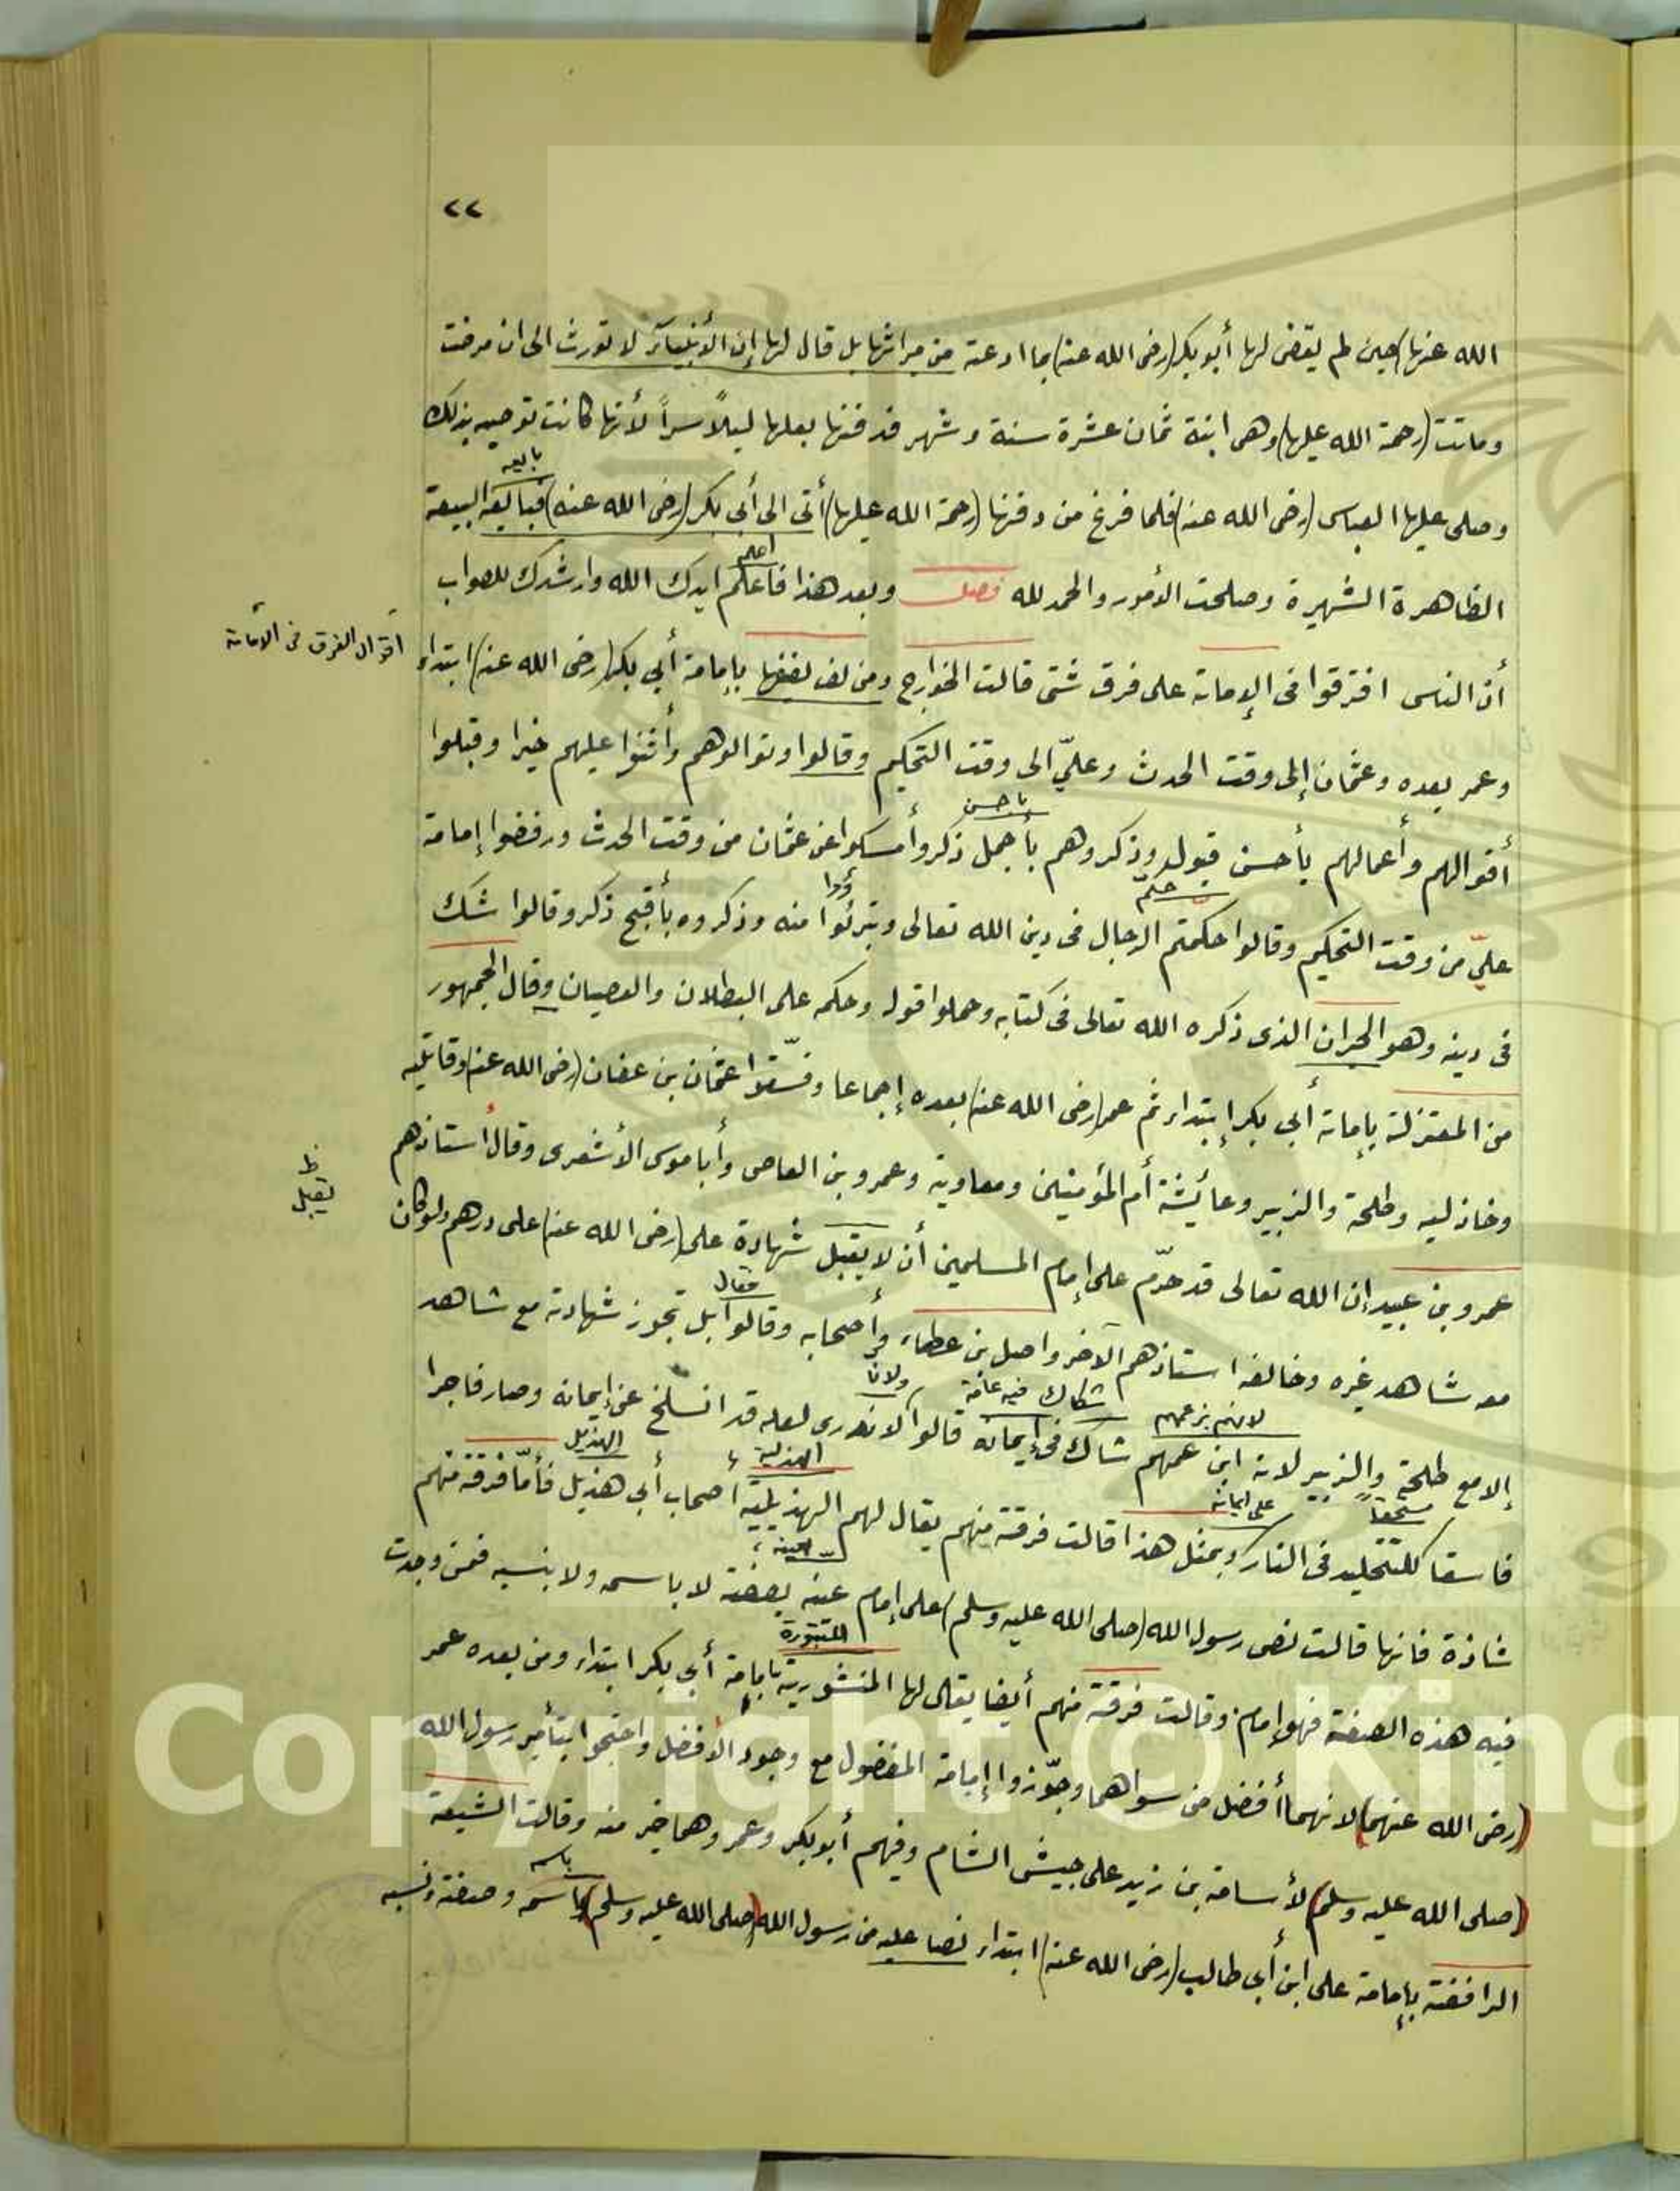 ٢٢
الله عنها) حين لم يقض لها أبو بكر (رضى الله عنه) بما ادعته من ميراثها بل قال لها إن الأنبياء لا تورث الى ان مرضت
وماتت (رحمة الله عليها) وهى ابنة ثمان عشرة سنة وشهر فدفنها بعلها ليلاً سراً لأنها كانت توصيه بذلك
بايعه
وصلى عليها العباس (رضى الله عنه) فلما فرغ من دفنها (رحمة الله عليها) أتى الى أبى بكر (رضى الله عنه) فبايعه البيعة
اعلم
الظاهرة الشهيرة وصلحت الأمور والحمد لله فصل وبعد هذا فاعلم ايدك الله وارشدك للصواب
اقوال الفرق فى الامامة
أن الناس افترقوا فى الإمامة على فرق شتى قالت الخوارج ومن لف لفها بإمامة أبي بكر (رضى الله عنه) ابتداء
وعمر بعده وعثمان إلى وقت الحدث وعليّ الى وقت التحكيم وقالوا وتوالوهم وأثنوا عليهم خيرا وقبلوا
باحسن
أقوالهم وأعمالهم بأحسن قبول وذكروهم بأجمل ذكر وأمسكوا عن عثمان من وقت الحدث ورفضوا إمامة
حكم
عليّ من وقت التحكيم وقالوا حكمتم الرجال فى دين الله تعالى وتبرئوا منه وذكروه بأقبح ذكر وقالوا شك
فى دينه وهو الحيران الذى ذكره الله تعالى فى كتابه وحملوا قوله وحكمه على البطلان والعصيان وقال الجمهور
من المعتزلة بإمامة أبي بكر إبتداء ثم عمر (رضى الله عنه) بعده إجماعا وفسّقوا عثمان بن عفان (رضى الله عنه) وقاتليه
وخاذليه وطلحة والزبير وعائشة أم المؤمنين ومعاوية وعمرو بن العاصى وأبا موسى الأشعرى وقال أستاذهم
ظ
يقبل
عمرو بن عبيد إن الله تعالى قد حرّم على إمام المسلمين أن لا يقبل شهادة على (رضى الله عنه) على درهم ولو كان
فقال
معه شاهد غيره وخالفه استاذهم الآخر واصل بن عطاء وأصحابه وقالوا بل تجوز شهادته مع شاهد
لانهم بزعمهم شكاك فيه عامة ولانا
إلا مع طلحة والزبير لانه ابن عمهم شاك فى إيمانه قالوا لا ندرى لعله قد انسلخ عن إيمانه وصار فاجرا
مستحقاً على ايمانه الهذلية الهذيل
فاسقا للتخليد فى النار وبمثل هذا قالت فرقة منهم يقال لهم الهذيلية أصحاب أبي هذيل فأمّا فرقة منهم
شاذة فانها قالت نص رسول الله (صلى الله عليه وسلم) على إمام عينه بصفته لا باسمه ولا بنسبه فمن وجدت
فيه هذه الصفة فهو إمام وقالت فرقة منهم أيضا يقال لها المنشورية بإمامة أبي بكر ابتداء ومن بعده عمر
(رضى الله عنهما) لانهما أفضل من سواهما وجوّزوا إمامة المفضول مع وجود الأفضل واحتجوا بتأمير رسول الله
(صلى الله عليه وسلم) لأسامة بن زيد على جيش الشام وفيهم أبو بكر وعمر وهما خير منه وقالت الشيعة
باسمه
الرافضة بإمامة على ابن أبي طالب (رضى الله عنه) ابتداء نصا عليه من رسول الله (صلى الله عليه وسلم) باسمه وصفته ونسبه
Copyright © King